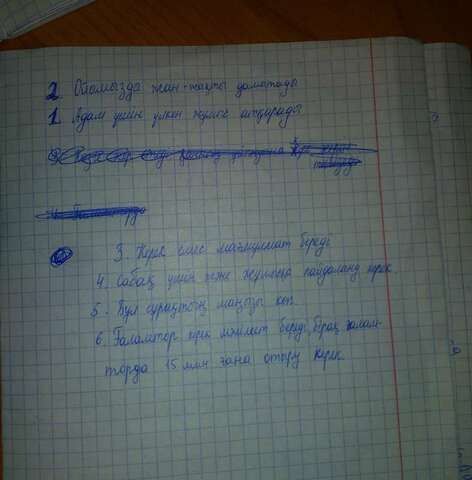 2 Ойымызды жан-жақты дамытады
1. Адам үшін үлкен жұмыс атқарады
3. Керек емес мағлұмат береді
4. Сабақ үшін және жұмысқа пайдалану керек.
5. Бұл сұрақтың маңызы көп.
6. Ғаламтор көп мәлімет береді, бірақ ғалам-
торда 15 мин ғана отыру керек.